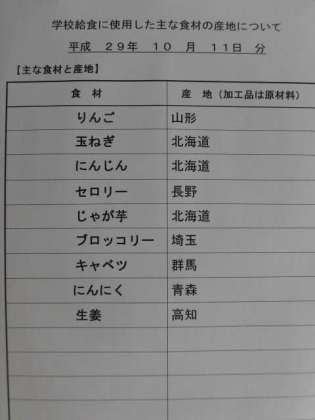 学校給食に使用した主な食材の産地について
平成 29年 10 月 11日 分
【主な食材と産地】
食 材 産 地（加工品は原材料）
りんご 山形
玉ねぎ 北海道
にんじん 北海道
セロリー 長野
じゃが芋 北海道
ブロッコリー 埼玉
キャベツ 群馬
にんにく 青森
生姜 高知